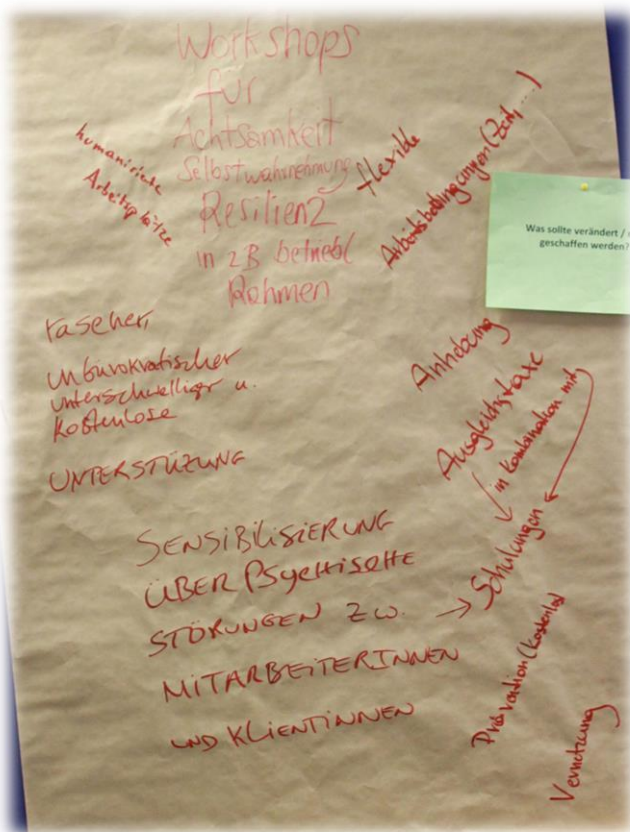 Workshops
für
Achtsamkeit
Selbstwahrnehmung
Resilienz
in zB betriebl
Rahmen
humanistische
Arbeitsplätze
flexible
Arbeitsbedingungen (Zeit, ...)
Was sollte verändert /
geschaffen werden?
rascher,
unbürokratischer
unterschwelliger u.
kostenlose
UNTERSTÜZUNG
Anhebung
Ausgleichstaxe
in Kombination mit
→ Schulungen
SENSIBILISIERUNG
ÜBER PSYCHISCHE
STÖRUNGEN ZW.
MITARBEITERINNEN
UND KLIENTINNEN
Prävention (kostenlos)
Vernetzung